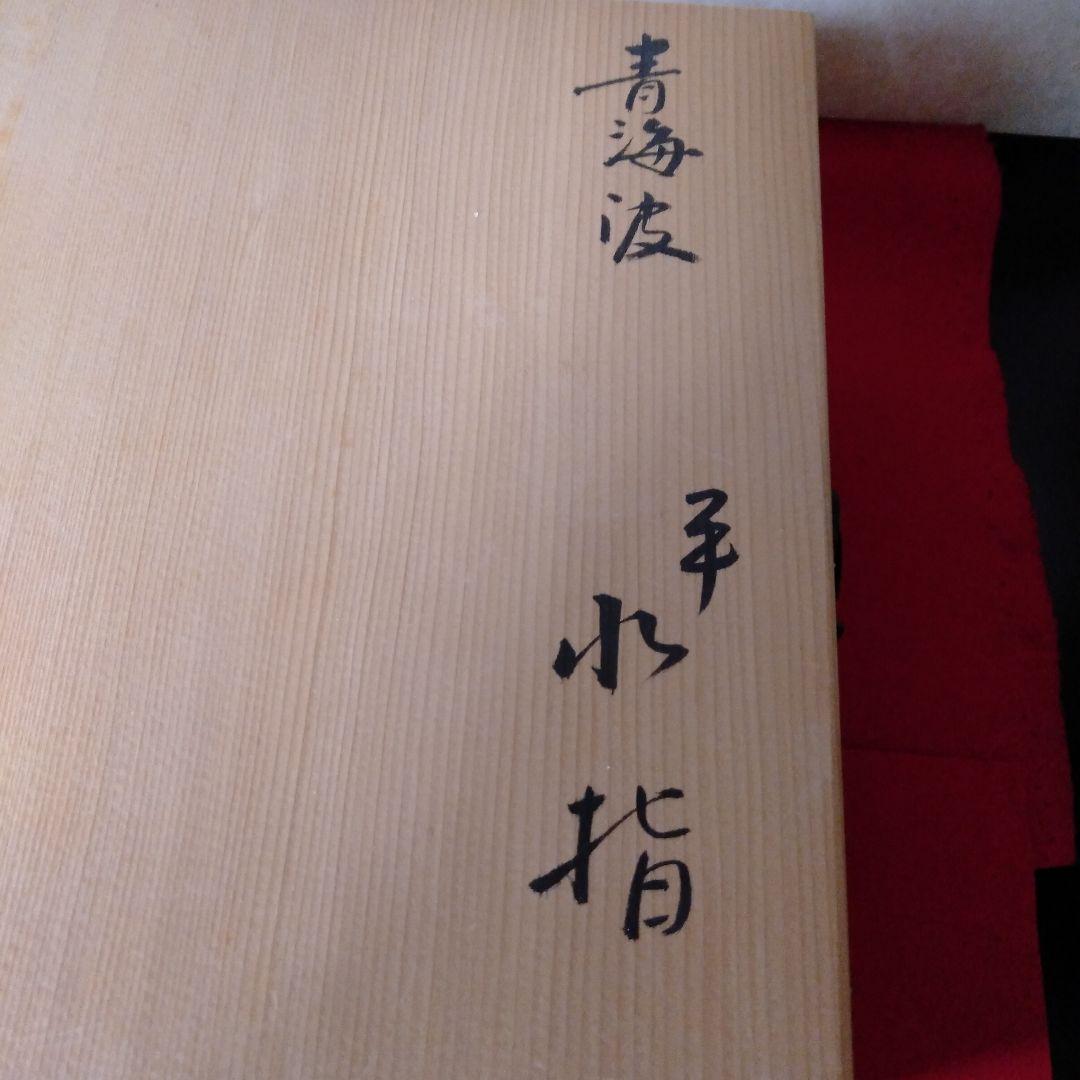 青海波
平
水指